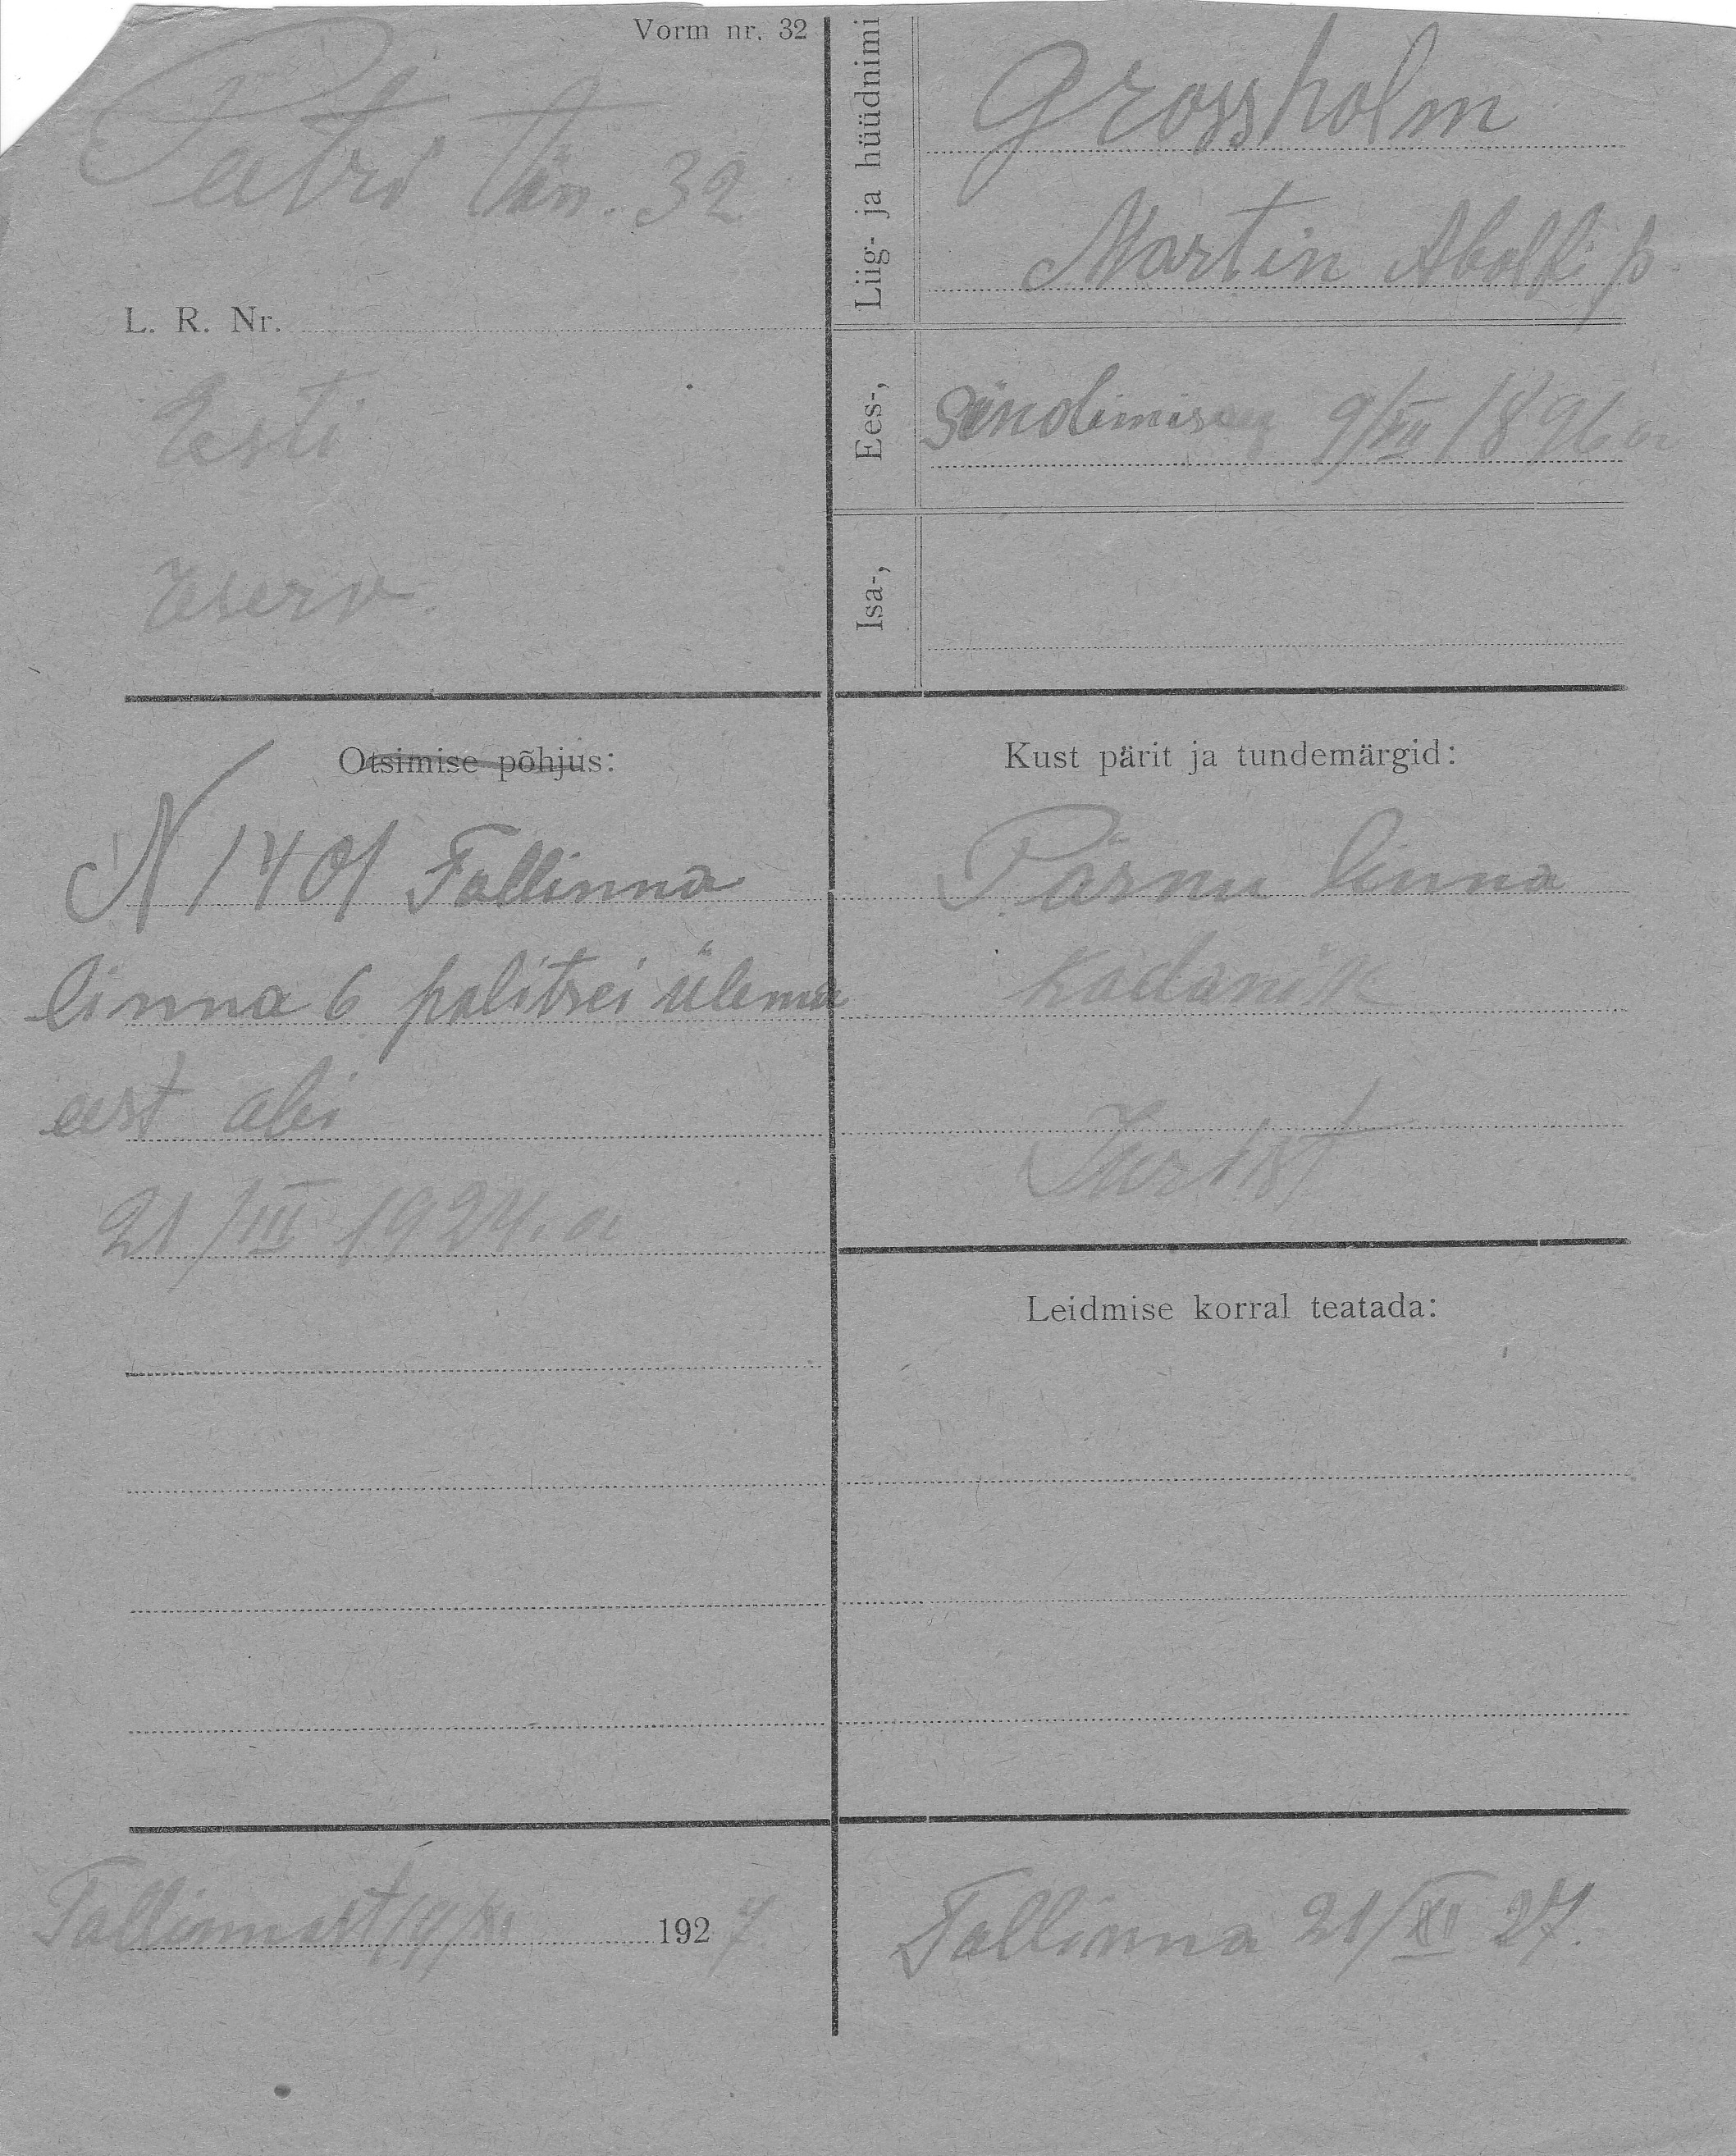 Vorm nr. 32
Peetri tän. 32
L. R. Nr.
Eesti
reserv.
Liig- ja hüüdnimi
Grossholm
Martin Adolfi p.
Ees-,
Sündimise 9/XII 1896 a
Isa-,
Otsimise põhjus:
N 1401 Tallinna
linna 6 politsei ülema
eest abi
21/III 1924. a
Kust pärit ja tundemärgid:
Pärnu linna
kodanik
Jurist
Leidmise korral teatada:
Tallinnast 19/XI 1927
Tallinna 21/XI 27.